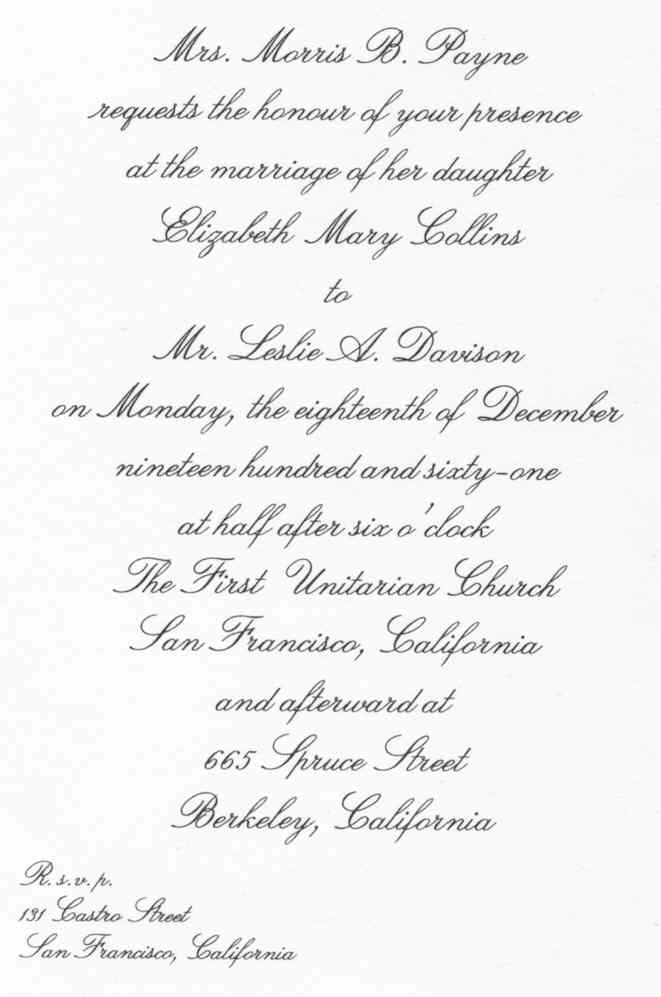 Mrs. Morris B. Payne
requests the honour of your presence
at the marriage of her daughter
Elizabeth Mary Collins
to
Mr. Leslie A. Davison
on Monday, the eighteenth of December
nineteen hundred and sixty-one
at half after six o'clock
The First Unitarian Church
San Francisco, California
and afterward at
665 Spruce Street
Berkeley, California
R.s.v.p.
131 Castro Street
San Francisco, California